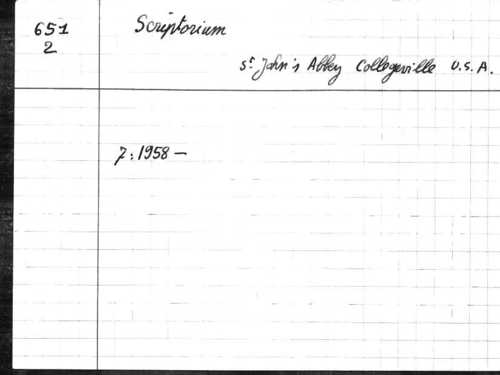 651
2
Scriptorium
St John's Abbey Collegeville U.S.A.
7:1958—